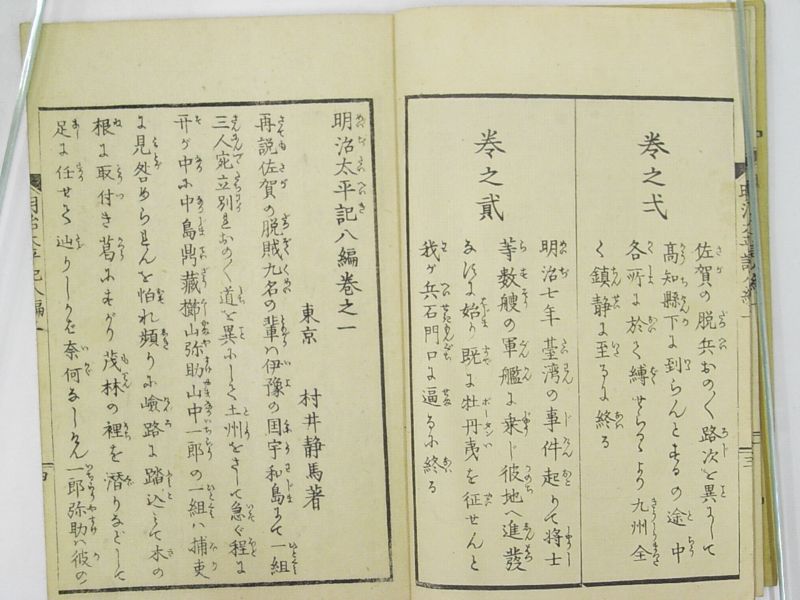 巻之弌
佐賀の脱兵おの〱路次を異にして
高知縣下に到らんとするの途中
各所に於て縛せらるゝより九州全
く鎮静に至るに終る
巻之貳
明治七年臺湾の事件起りて将士
等数艘の軍艦に乗じ彼地へ進發
なすに始り既に牡丹夷を征せんと
我が兵石門口に逼るに終る
明治太平記八編巻之一
東京 村井静馬著
再説佐賀の脱賊九名の輩ハ伊豫の国宇和島にて一組
三人宛立別れおの〱道を異にして土州をさして急ぐ程に
开が中に中島鼎藏櫛山弥助山中一郎の一組ハ捕吏
に見咎められんを怕れ頻りに嶮路に踏込とて木の
根に取付き葛にすがり茂林の裡を潜りなどして
足に任せて辿りしかど奈何なしけん一郎弥助ハ彼の
明治太平記八編一